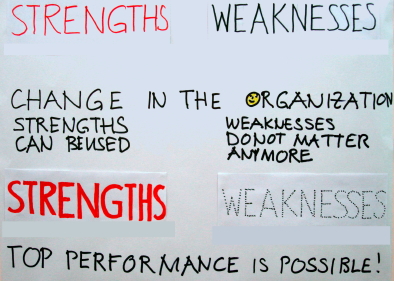 STRENGTHS WEAKNESSES
CHANGE IN THE ORGANIZATION
STRENGTHS WEAKNESSES
CAN BE USED DO NOT MATTER
ANYMORE
STRENGTHS WEAKNESSES
TOP PERFORMANCE IS POSSIBLE!